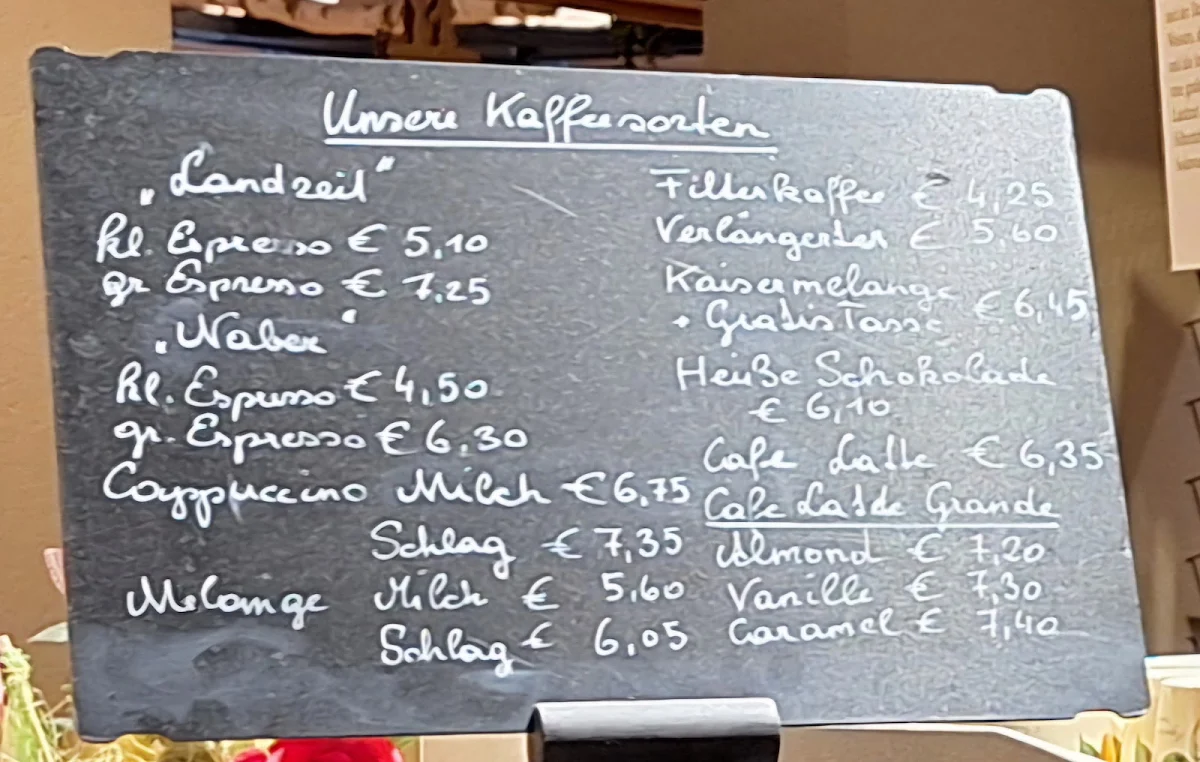 Unsere Kaffeesorten
„Landzeit"
kl. Espresso € 5,10
gr. Espresso € 7,25
„Naber"
kl. Espresso € 4,50
gr. Espresso € 6,30
Cappuccino Milch € 6,75
Schlag € 7,35
Melange Milch € 5,60
Schlag € 6,05
Filterkaffee € 4,25
Verlängerter € 5,60
Kaisermelange
+ Gratis Tasse € 6,45
Heiße Schokolade
€ 6,10
Cafe Latte € 6,35
Cafe Latte Grande
Almond € 7,20
Vanille € 7,30
Caramel € 7,40